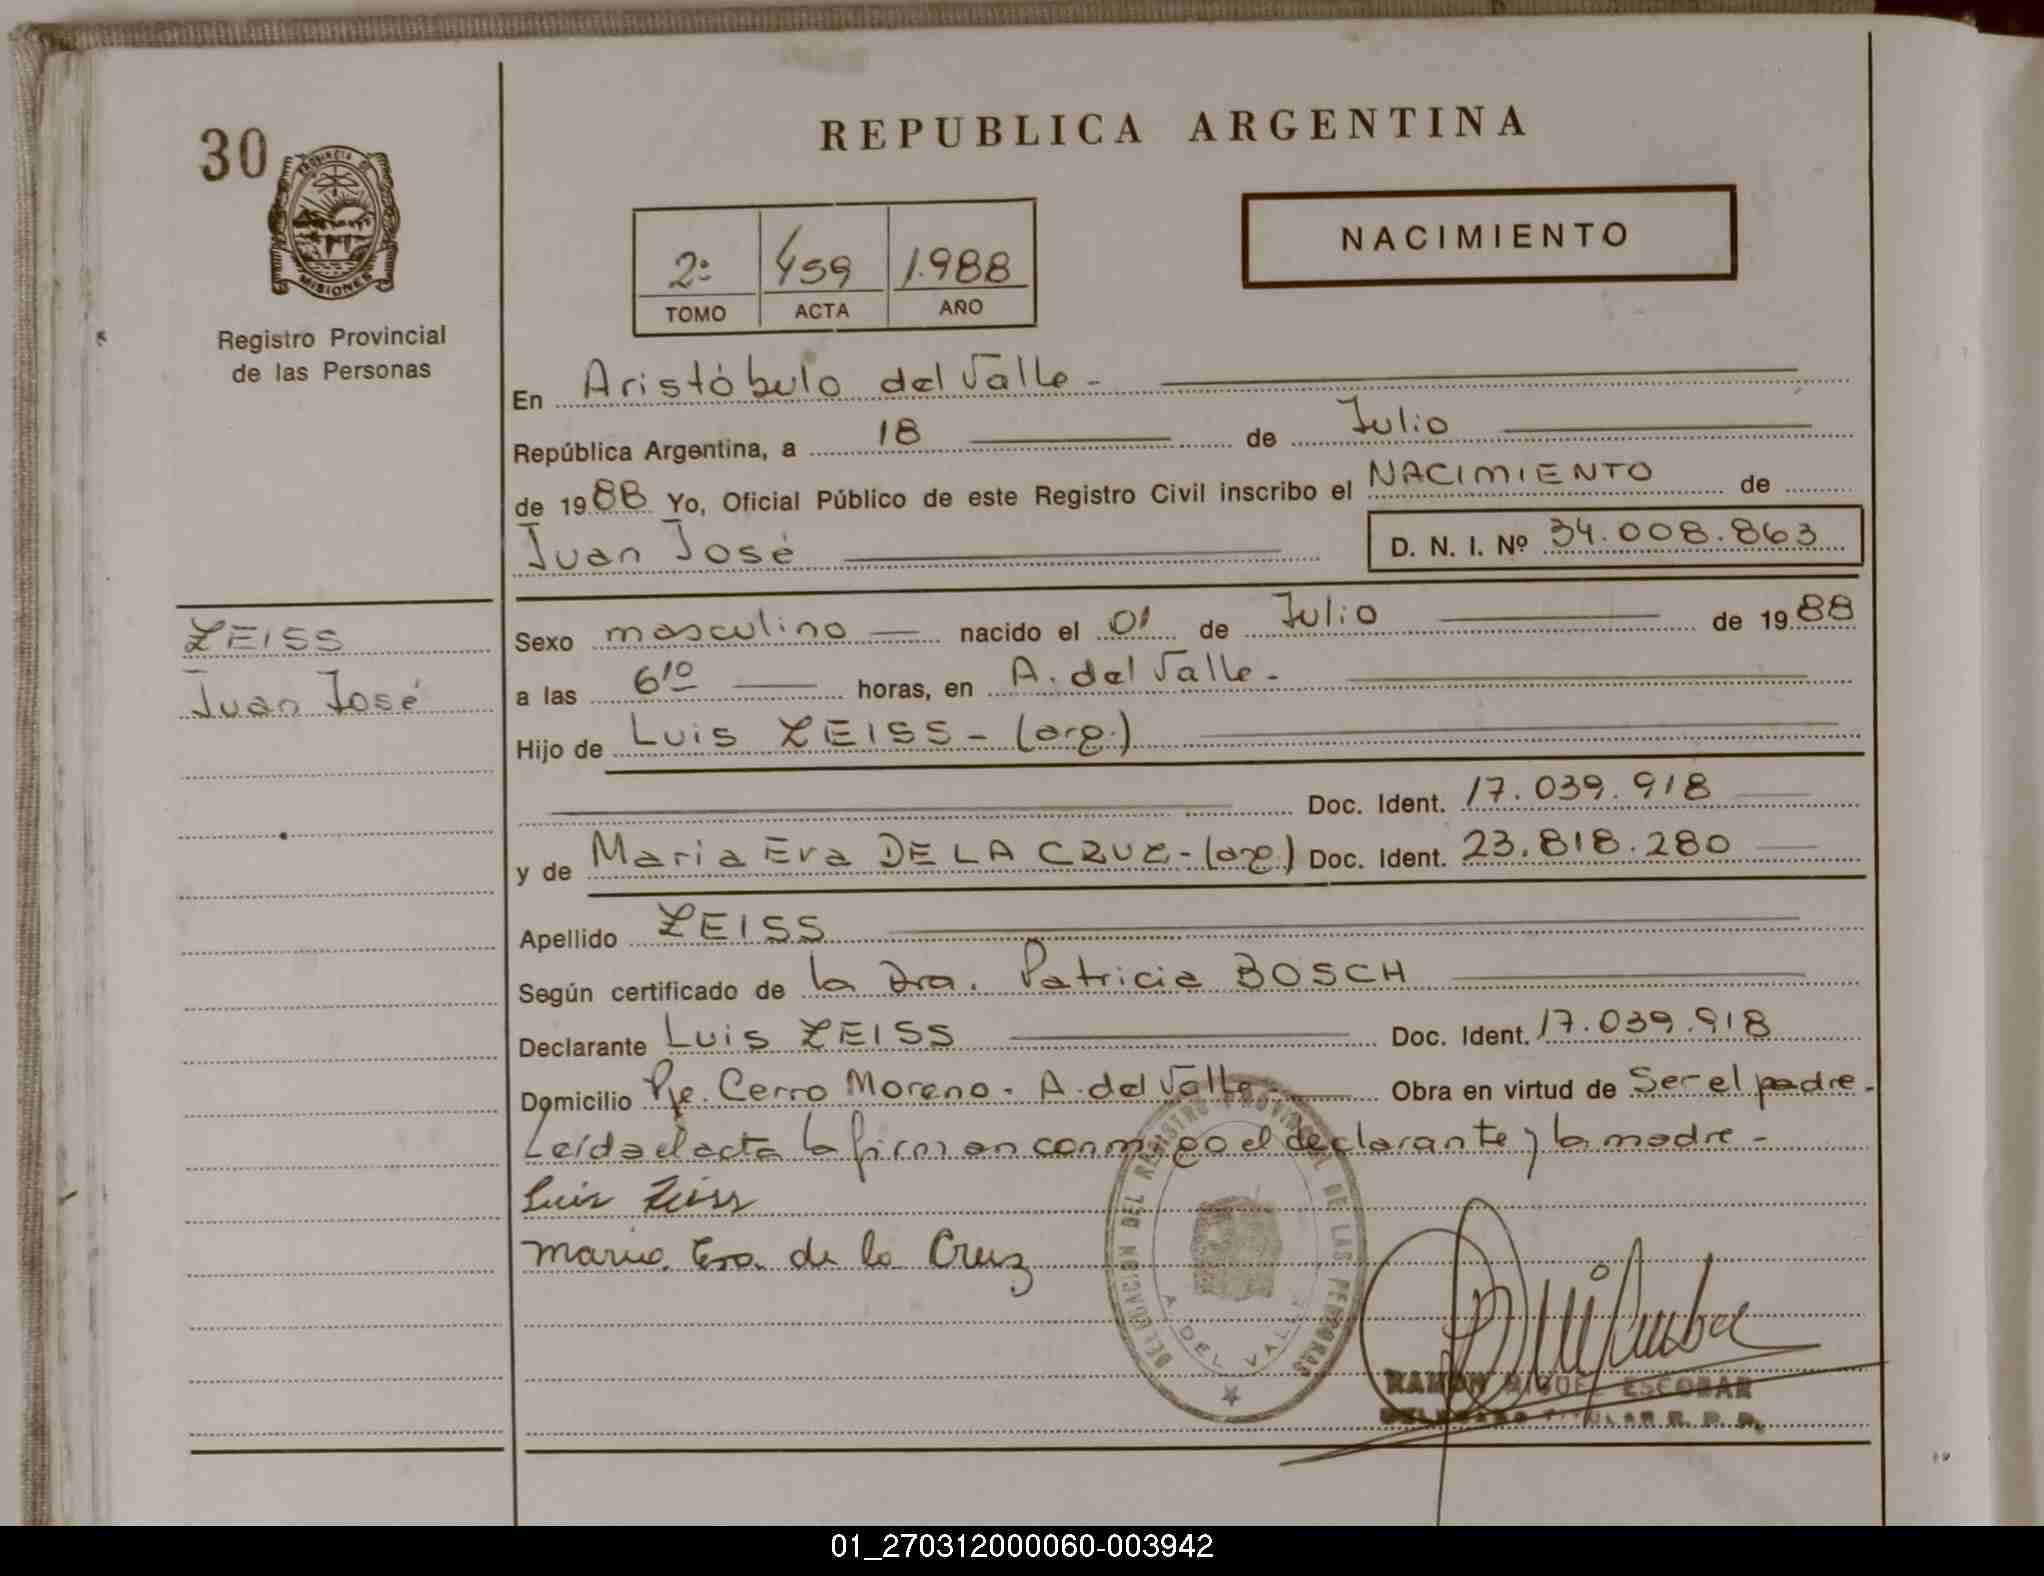 30
PROVINCIA DE
MISIONES
Registro Provincial
de las Personas
REPUBLICA ARGENTINA
NACIMIENTO
2º 459 1.988
TOMO ACTA AÑO
En Aristóbulo del Valle -
República Argentina, a 18 de Julio
de 1988 Yo, Oficial Público de este Registro Civil inscribo el NACIMIENTO de
Juan José D. N. I. Nº 34.008.863
ZEISS
Juan José
Sexo masculino nacido el 01 de Julio de 1988
a las 6¹⁰ horas, en A. del Valle -
Hijo de Luis ZEISS - (arg.)
Doc. Ident. 17.039.918
y de Maria Eva DE LA CRUZ - (arg.) Doc. Ident. 23.818.280
Apellido ZEISS
Según certificado de la Dra. Patricia BOSCH
Declarante Luis ZEISS Doc. Ident. 17.039.918
Domicilio Pje. Cerro Moreno - A. del Valle - Obra en virtud de Ser el padre -
Leída el acta la firman conmigo el declarante y la madre -
Luis Zeiss
Maria Eva de la Cruz
DELEGACION DEL REGISTRO PROVINCIAL DE LAS PERSONAS
A. DEL VALLE
RAMON MIGUEL ESCOBAR
DELEGADO TITULAR R. P. P.
01_270312000060-003942